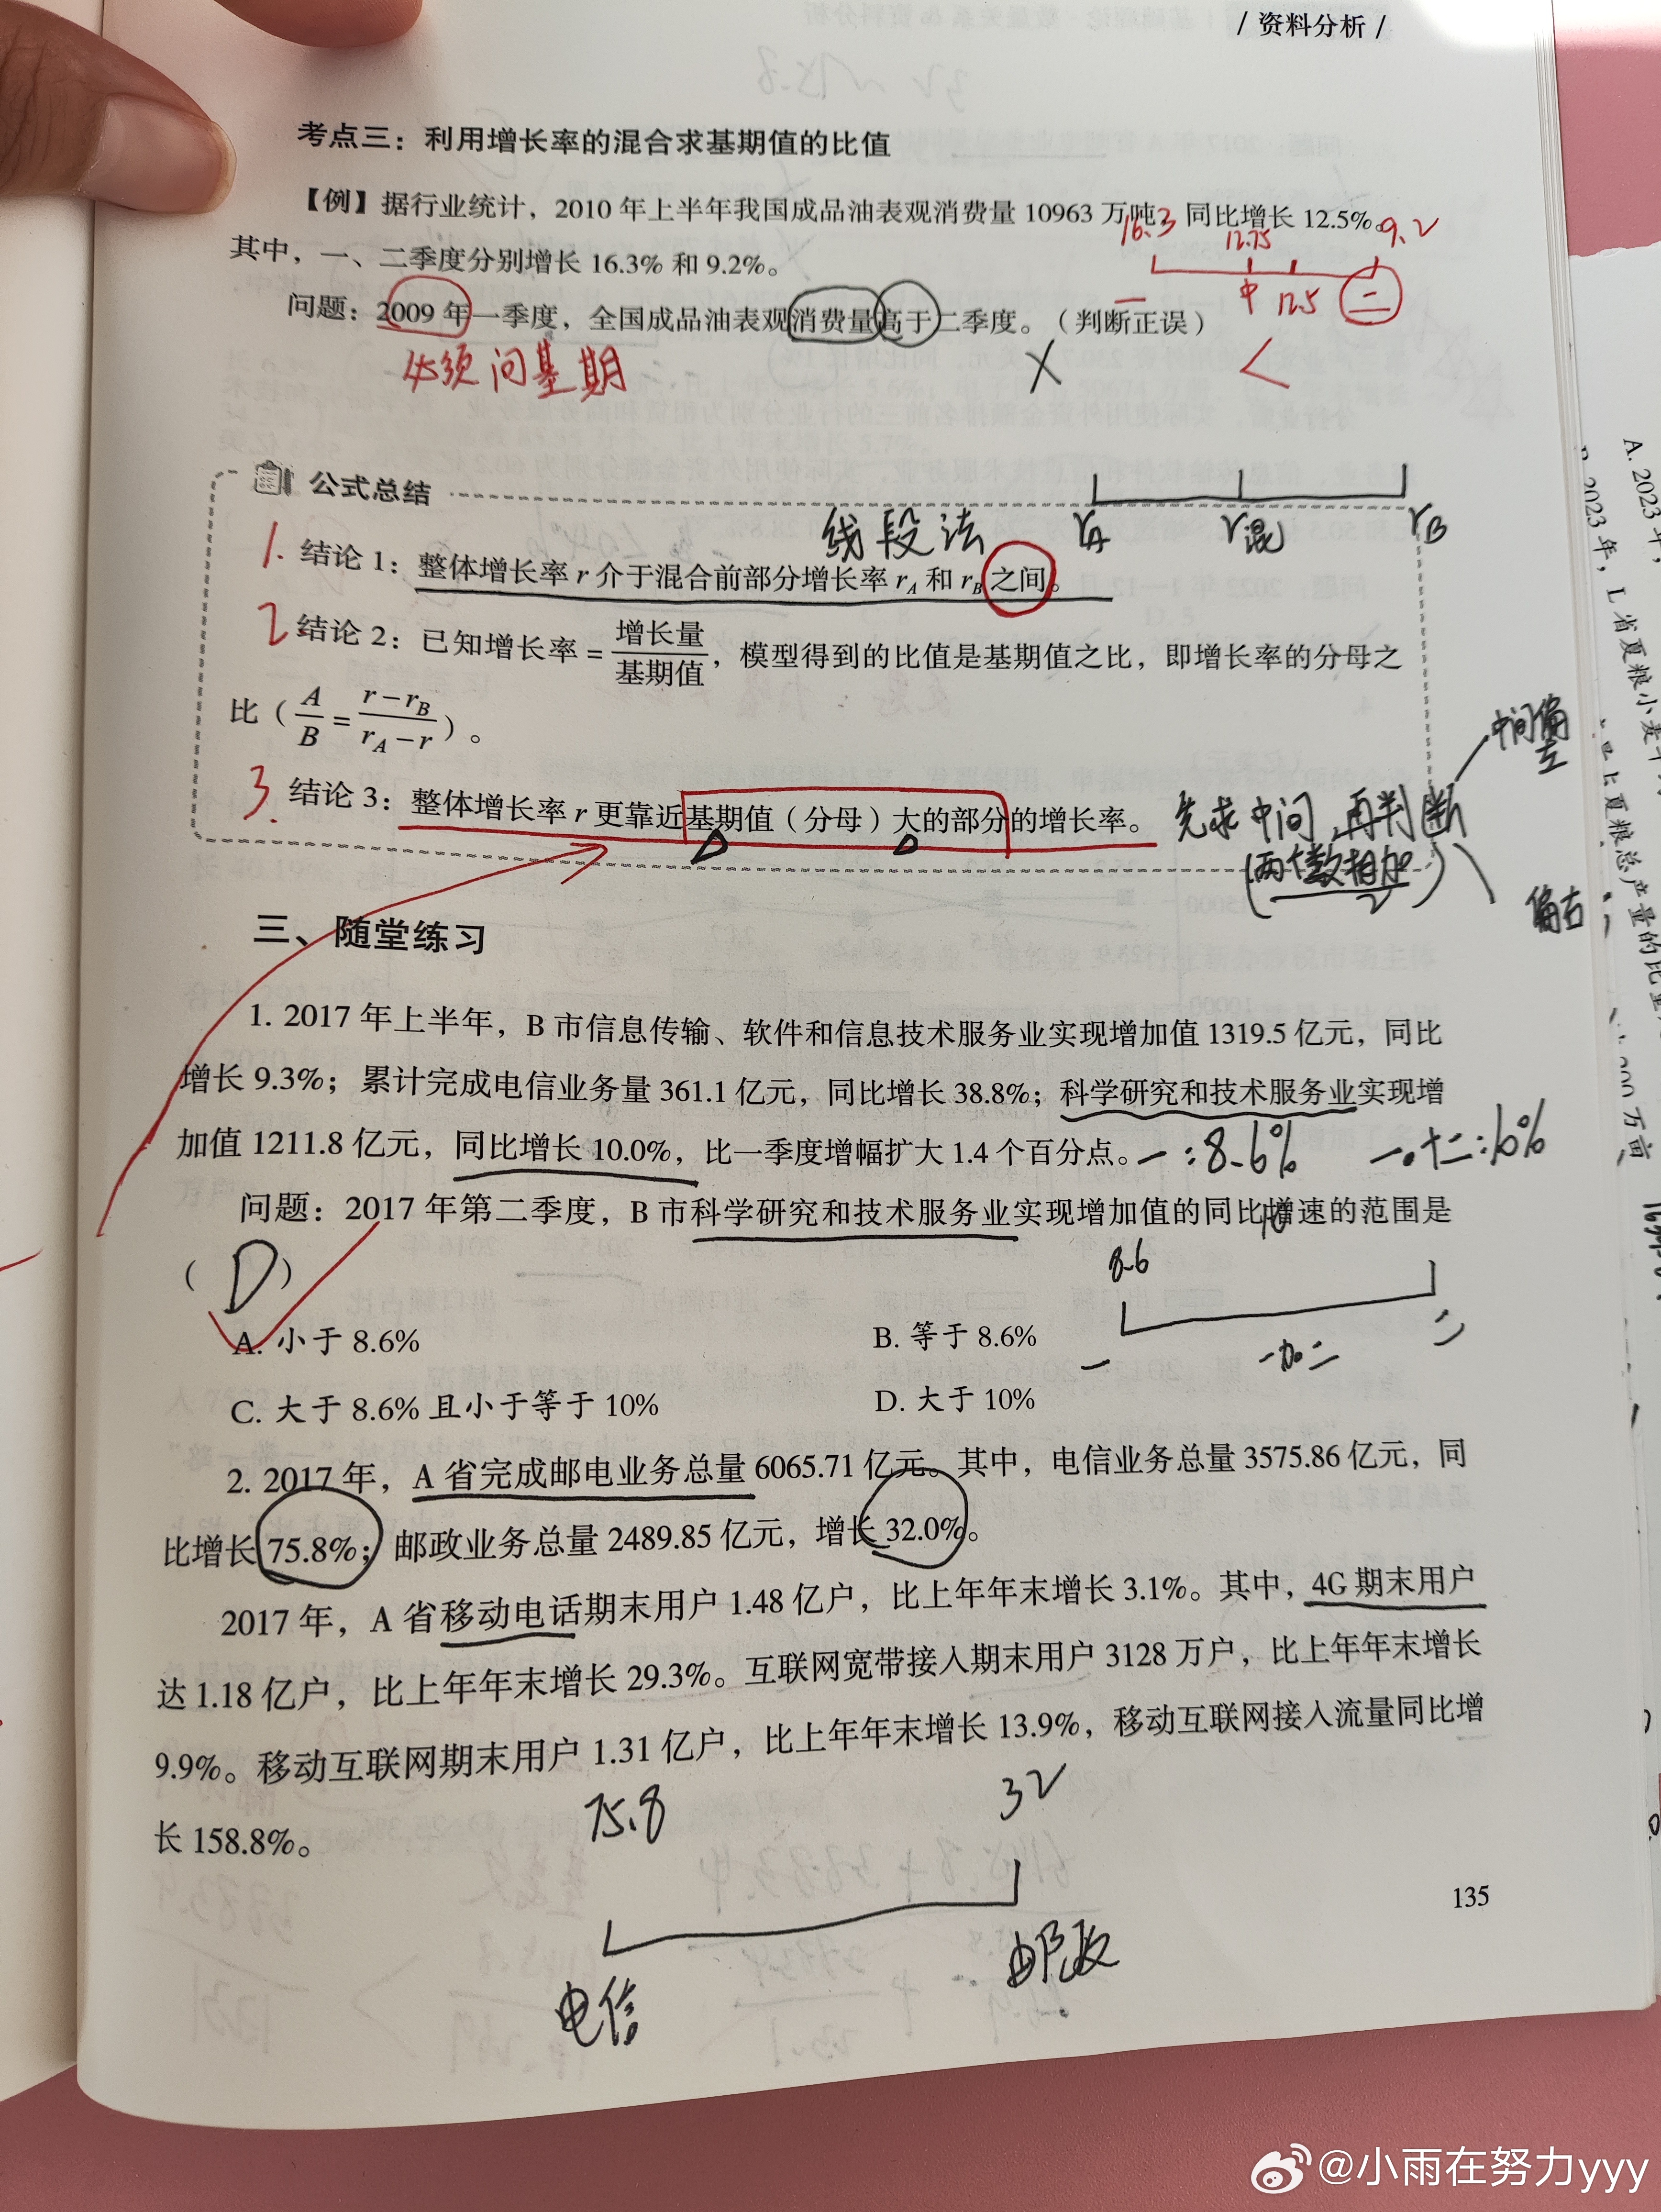 / 资料分析 /
考点三：利用增长率的混合求基期值的比值
【例】据行业统计，2010 年上半年我国成品油表观消费量 10963 万吨，同比增长 12.5%。
16.3 12.75 9.2
其中，一、二季度分别增长 16.3% 和 9.2%。
一 中 12.5 二
问题：2009 年一季度，全国成品油表观消费量高于二季度。（判断正误）
必须问基期 × <
公式总结
线段法 rA r混 rB
1. 结论 1：整体增长率 r 介于混合前部分增长率 rA 和 rB 之间。
2 结论 2：已知增长率 = 增长量/基期值，模型得到的比值是基期值之比，即增长率的分母之
比（A/B = (r−rB)/(rA−r)）。
中间偏左
3. 结论 3：整体增长率 r 更靠近基期值（分母）大的部分的增长率。
先求中间 再判断
(两个数相加/2)
偏右
三、随堂练习
1. 2017 年上半年，B 市信息传输、软件和信息技术服务业实现增加值 1319.5 亿元，同比
增长 9.3%；累计完成电信业务量 361.1 亿元，同比增长 38.8%；科学研究和技术服务业实现增
加值 1211.8 亿元，同比增长 10.0%，比一季度增幅扩大 1.4 个百分点。
一：8.6% 一+二：10%
问题：2017 年第二季度，B 市科学研究和技术服务业实现增加值的同比增速的范围是
（ D ）
8.6 10
A. 小于 8.6%
B. 等于 8.6%
一 一加二 二
C. 大于 8.6% 且小于等于 10%
D. 大于 10%
2. 2017 年，A 省完成邮电业务总量 6065.71 亿元。其中，电信业务总量 3575.86 亿元，同
比增长 75.8%；邮政业务总量 2489.85 亿元，增长 32.0%。
2017 年，A 省移动电话期末用户 1.48 亿户，比上年年末增长 3.1%。其中，4G 期末用户
达 1.18 亿户，比上年年末增长 29.3%。互联网宽带接入期末用户 3128 万户，比上年年末增长
9.9%。移动互联网期末用户 1.31 亿户，比上年年末增长 13.9%，移动互联网接入流量同比增
长 158.8%。
75.8 32
电信 邮政
135
A. 2023 年，
2023 年，L 省夏粮小麦
上夏粮总产量的比重
200 万亩
@小雨在努力yyy